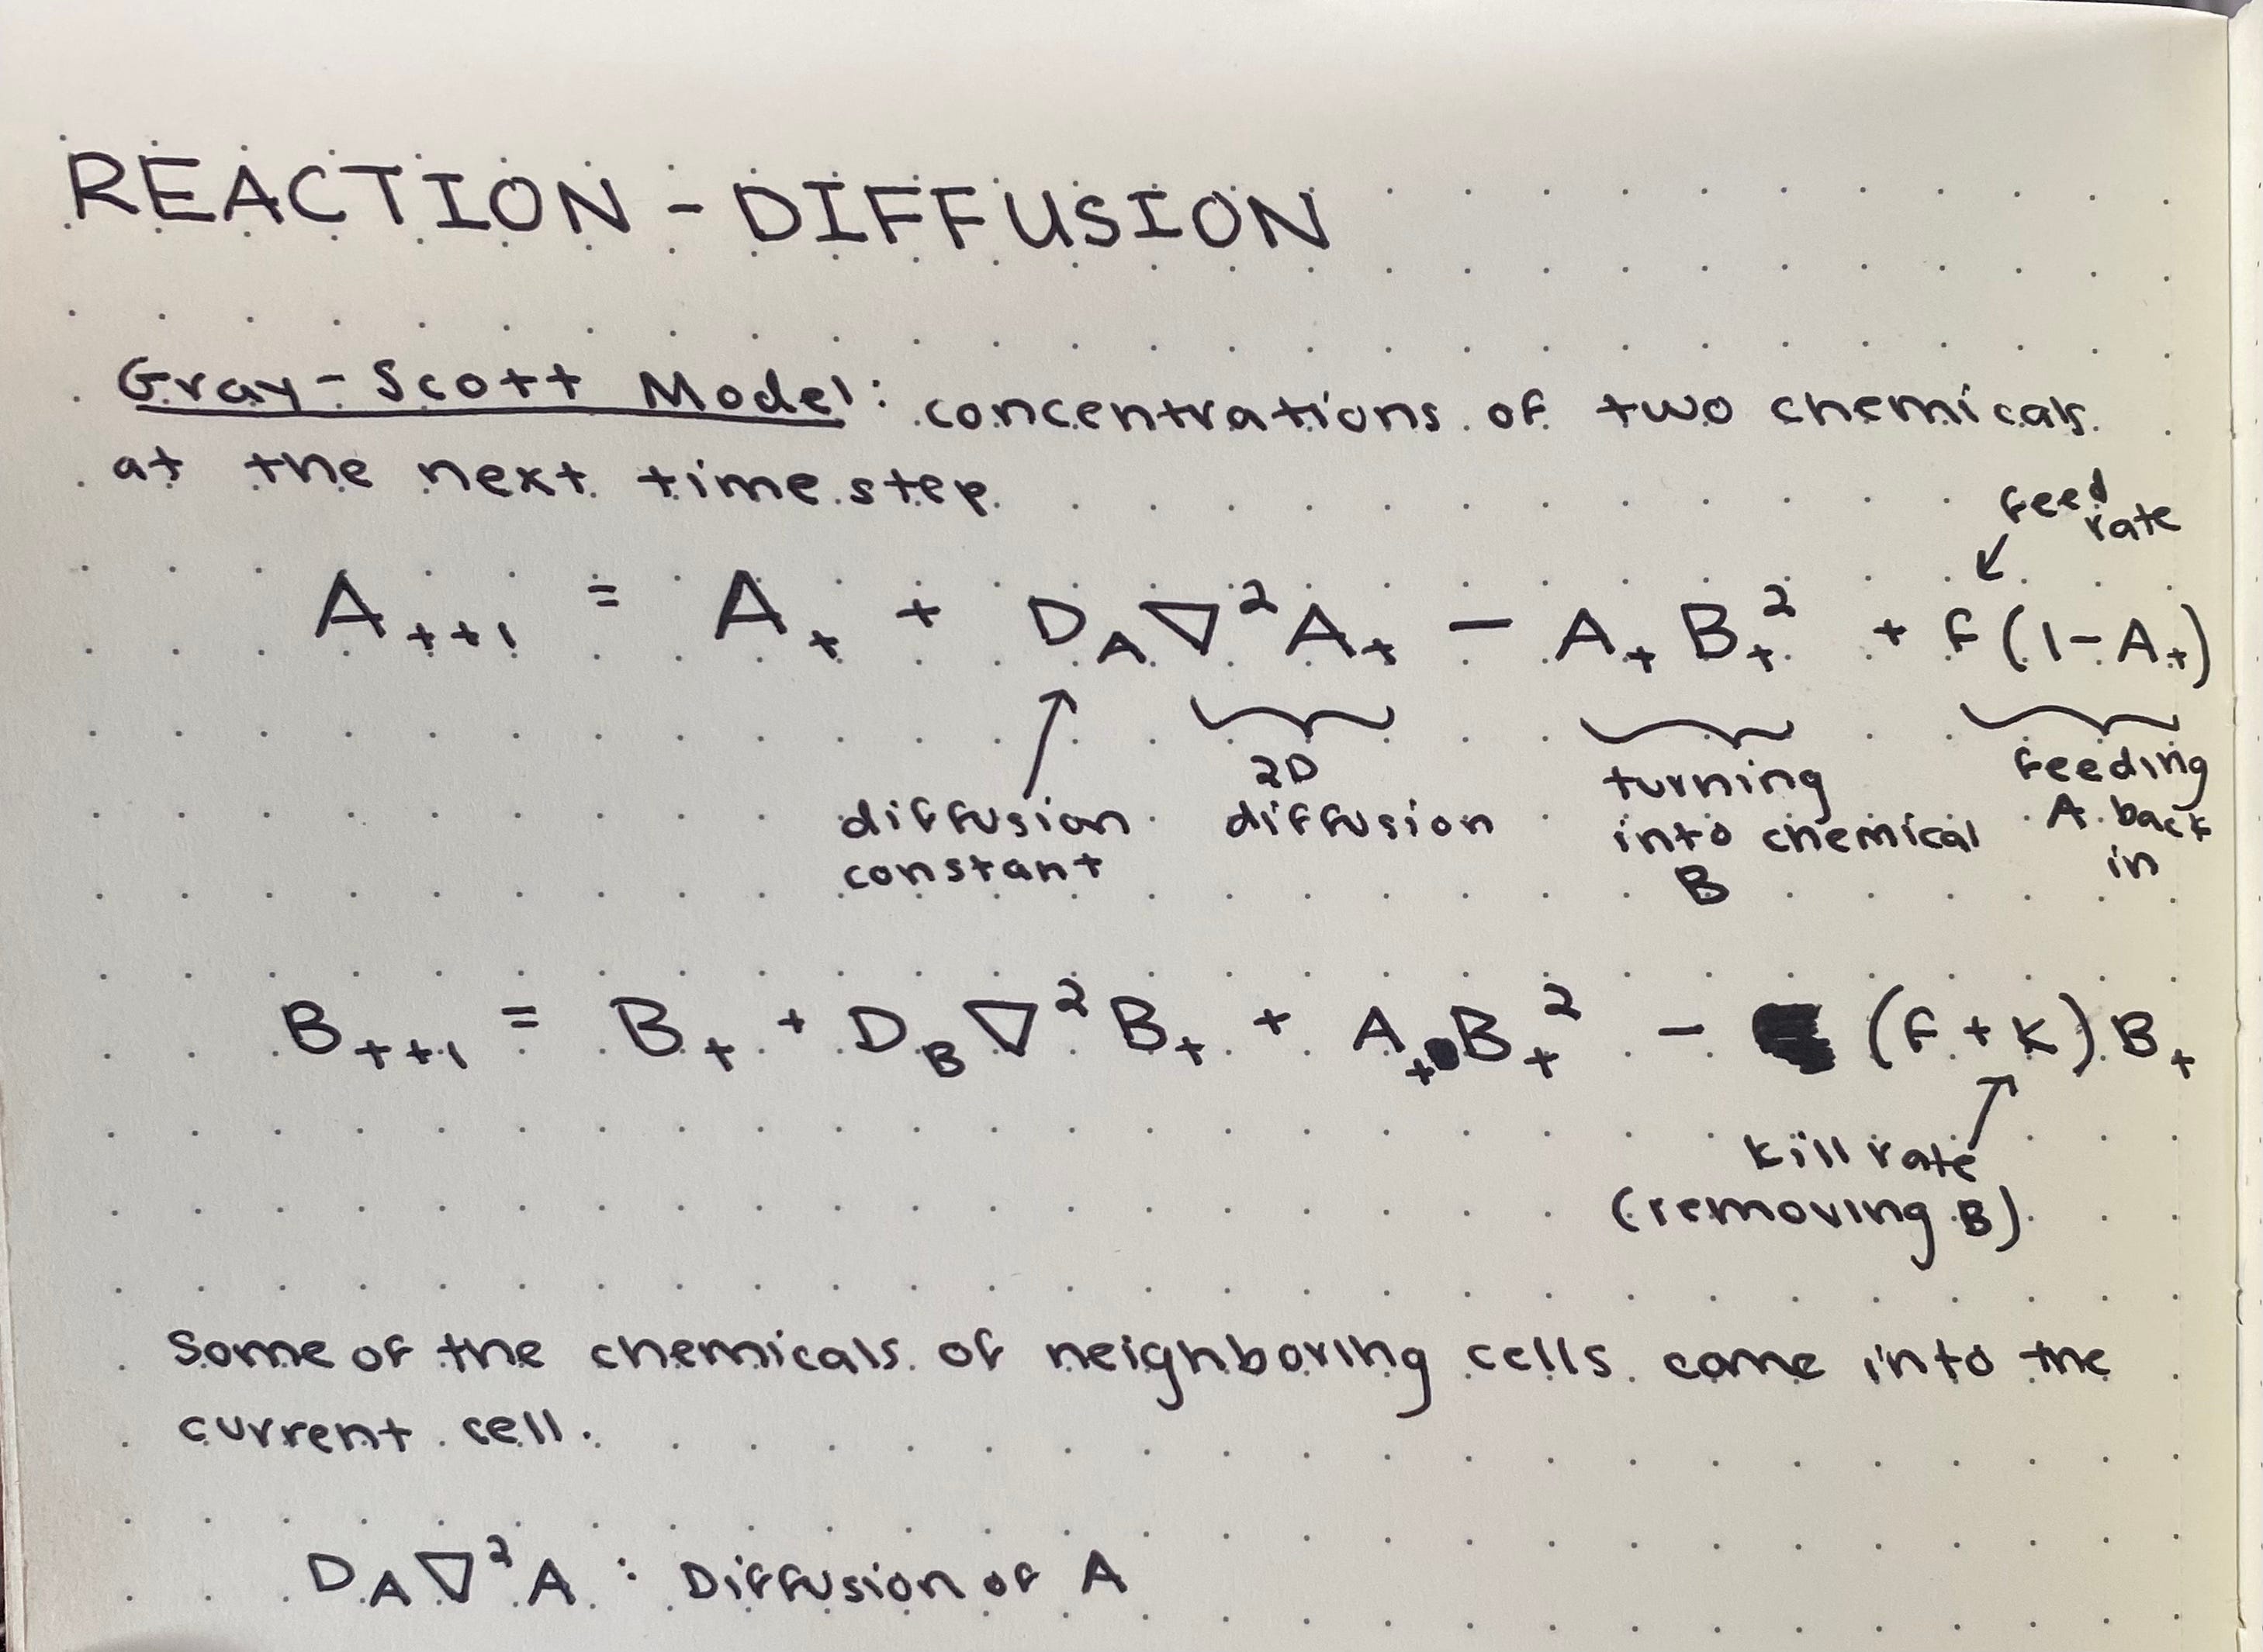 REACTION-DIFFUSION
Gray-Scott Model: concentrations of two chemicals
at the next time step.
feed
rate
Aₜ₊₁ = Aₜ + D_A∇²Aₜ − AₜBₜ² + f(1−Aₜ)
diffusion
constant
2D
diffusion
turning
into chemical
B
feeding
A back
in
Bₜ₊₁ = Bₜ + D_B∇²Bₜ + AₜBₜ² − (f+k)Bₜ
kill rate
(removing B)
Some of the chemicals of neighboring cells come into the
current cell.
D_A∇²A : Diffusion of A